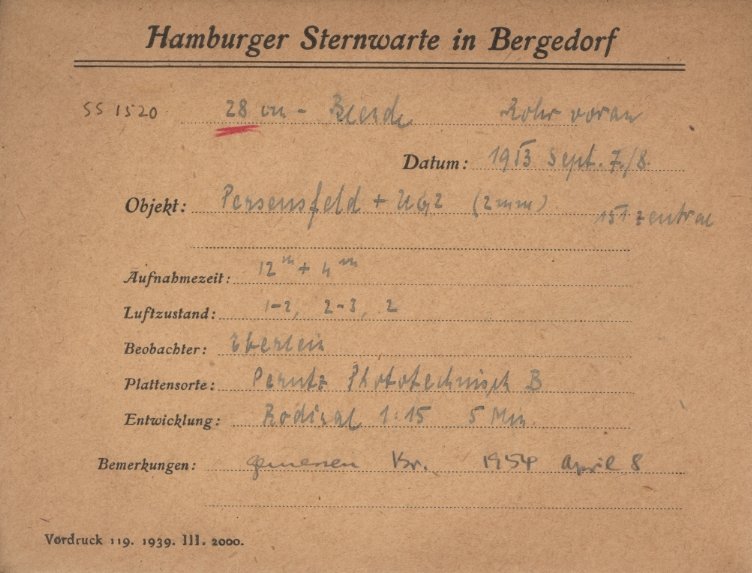 Hamburger Sternwarte in Bergedorf
SS 1520 28 cm - Blende Rohr voran
Datum: 1953 Sept. 7./8.
Objekt: Perseusfeld + UG2 (2mm) ist zentral
Aufnahmezeit: 12ᵐ + 4ᵐ
Luftzustand: 1-2, 2-3, 2
Beobachter: Eberlein
Plattensorte: Perutz Phototechnisch B
Entwicklung: Rodinal 1:15 5 Min.
Bemerkungen: gemessen Kr. 1954 April 8
Vordruck 119. 1939. III. 2000.